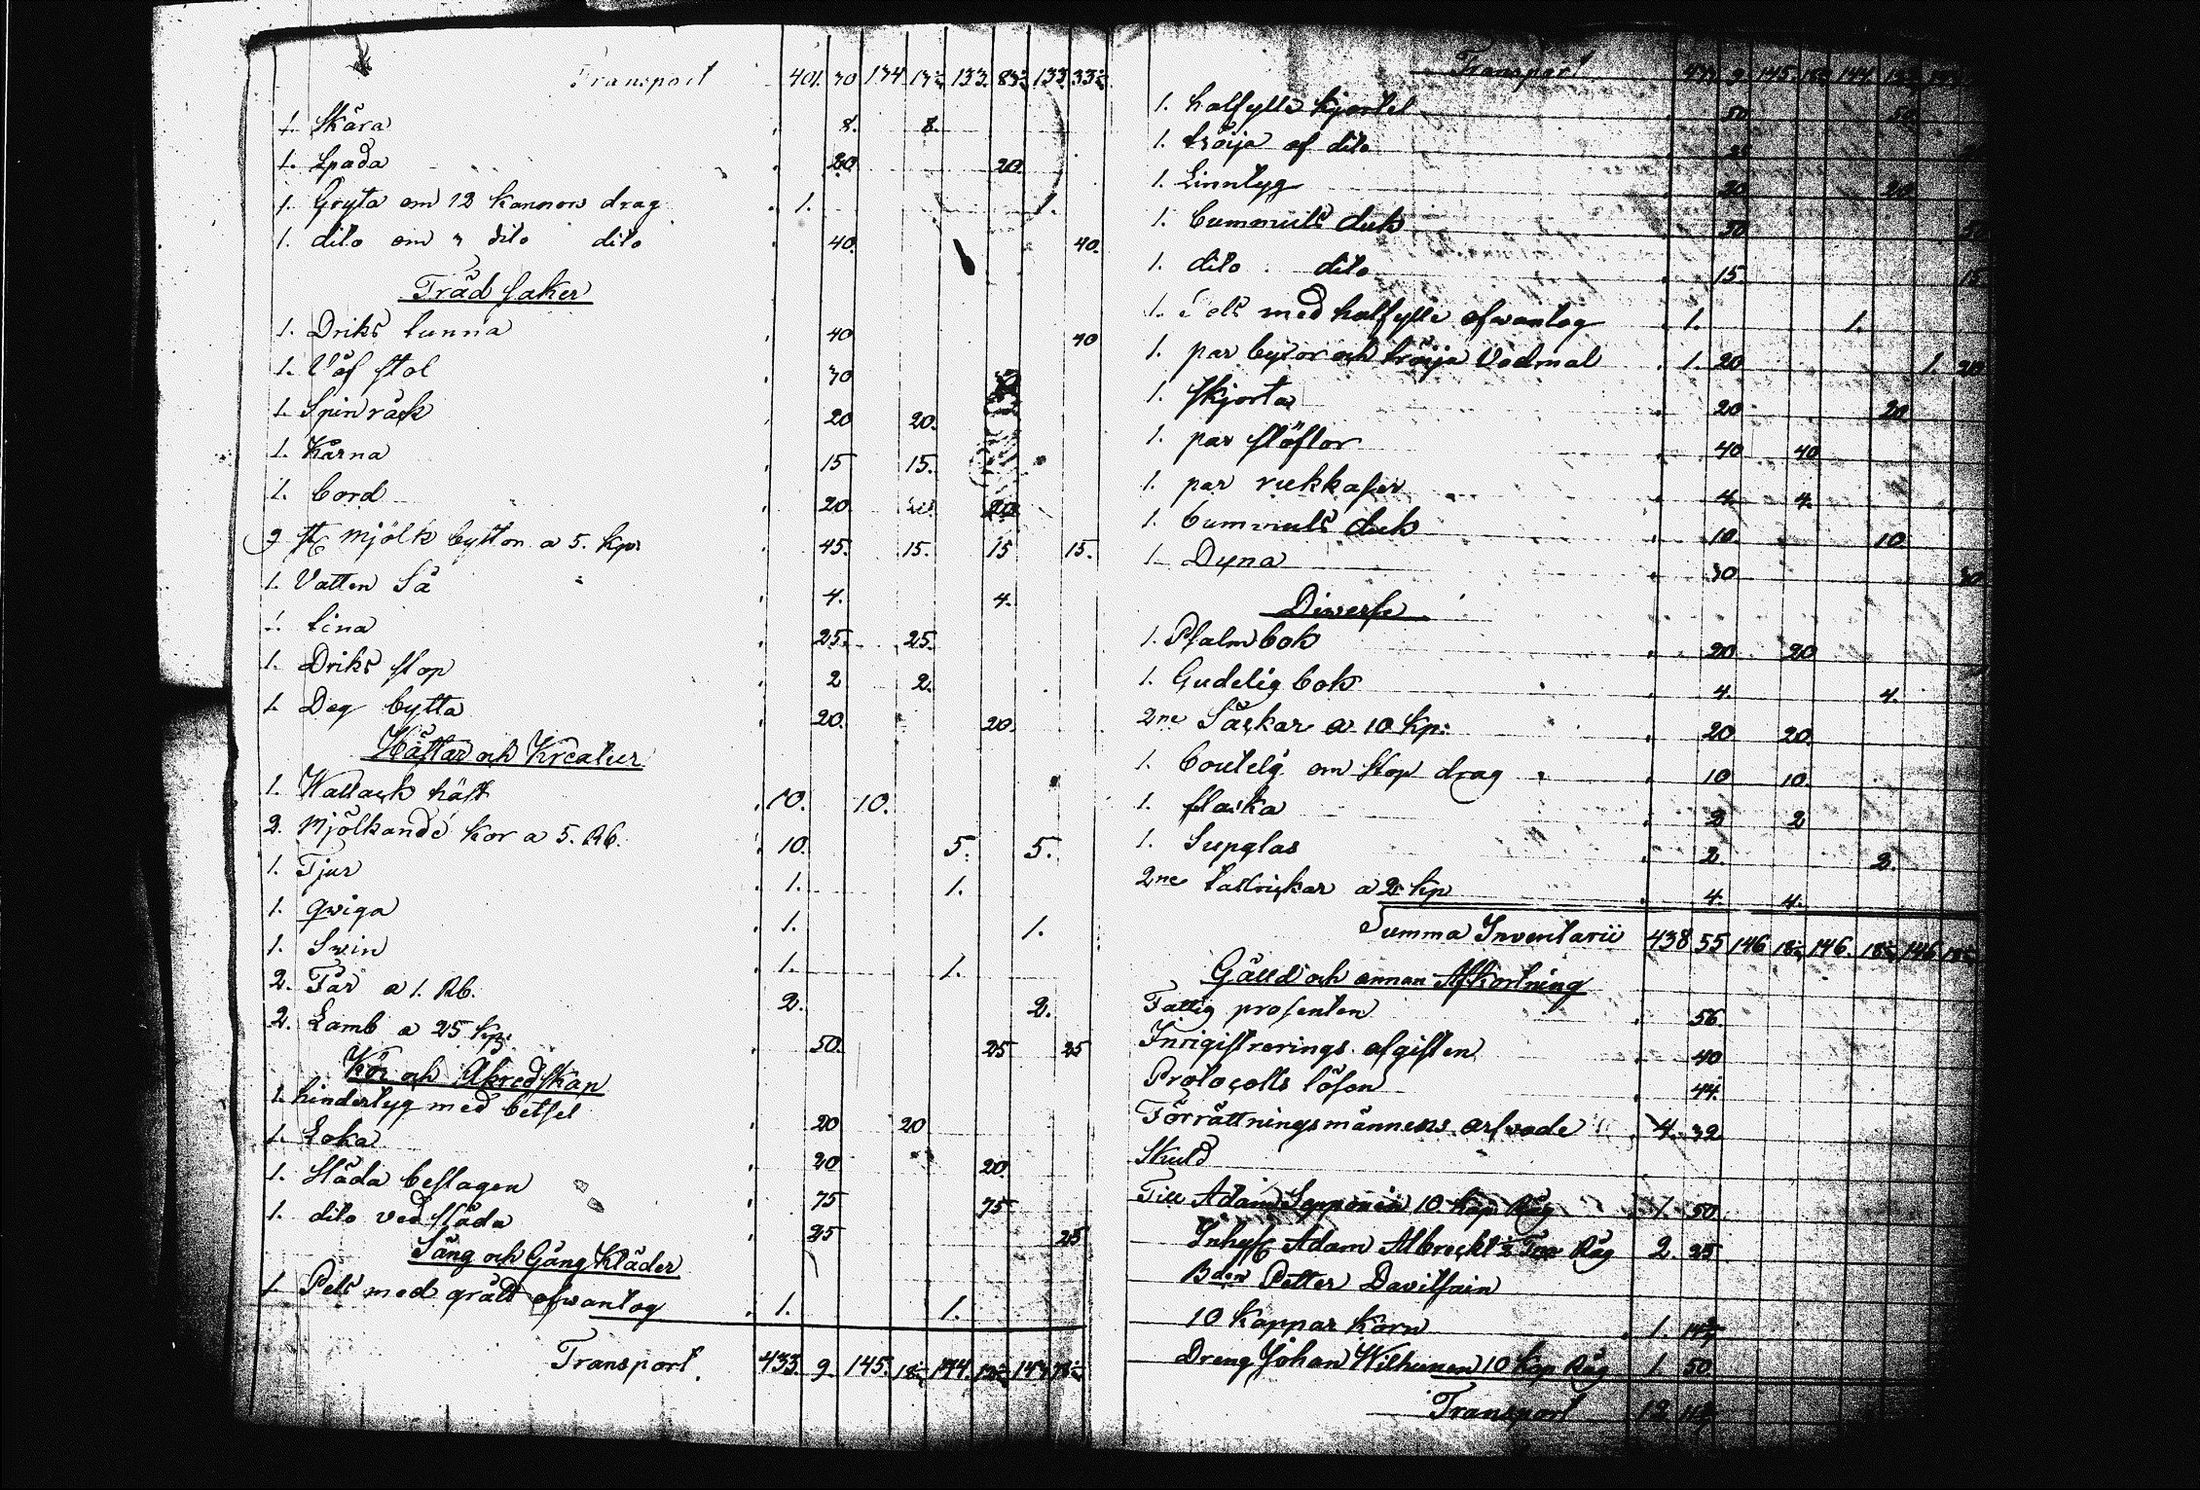 Transport 401. 30 134 133. 83 133. 33
1. Skära 8. 8.
1. Spada 20 20.
1. Gryta om 12 kannors drag 1. 1.
1. dito om 3 dito dito 40. 40.
Träd saker
1. Driks tunna 40 40
1. Väf stol 30
1. Spinråck 20 20.
1. Kärna 15 15.
1. bord 20. 20
3 st mjölk byttor a 5. kp 45. 15. 15 15.
1. Vatten Så 4. 4.
1. tina 25. 25.
1. Driks stop 2 2.
1. Deg bytta 20. 20.
Hästar och Kreatur
1. Wallack häst 10. 10.
2. Mjölkande kor a 5. Rb. 10. 5. 5.
1. Tjur 1. 1.
1. qwiga 1. 1.
1. Swin 1. 1.
2. Får a 1. Rb. 2. 2.
2. Lamb a 25 kp. 50. 25 25
Kör och Åkredskap
1. hindertyg med betsel 20 20
1. Loka 20 20.
1. Släda beslagen 75 75
1. dito ved släda 25 25
Säng och Gång Kläder
1. Pels med grått ofwantog 1. 1.
Transport. 433. 9. 145. 18 144. 144
Transport 433 9 145 144
1. halfylle kjortel 50 50
1. tröija af dito 25
1. Linntyg 20 20.
1. bummuls duk 50 50
1. dito dito 15. 15
1. Pels med halfylle ofwantog 1. 1.
1. par byxor och tröija Vadmal 1. 20 1. 20
1. Skjorta 20 20
1. par stöflor 40 40
1. par rukkaser 4. 4.
1. bummuls duk 10 10
1. Dyna 30 30
Diverse
1. Psalmbok 20 20
1. Gudelig bok 4. 4.
2ne Säckar a 10 kp: 20 20.
1. boutelg om stop drag 10 10.
1. flaska 2 2
1. Supglas 2. 2.
2ne tallrickar a 2 kp 4. 4.
Summa Inventarii 438 55 146 18 146. 18 146
Gälld och annan Afkortning
Fattig prosenten 56.
Inrigistrerings afgiften 40
Protocolls lösen 44.
Förrättningsmännens arfwode 4. 32
Skuld
Till Adam Sepponen 10 kap Råg 1. 50
Inhys Adam Albreckt ½ Tna Råg 2 25
Bden Petter Davitsain
10 kappar korn 1. 14
Dreng Johan Wilhunen 10 kap Råg 1. 50.
Transport 12